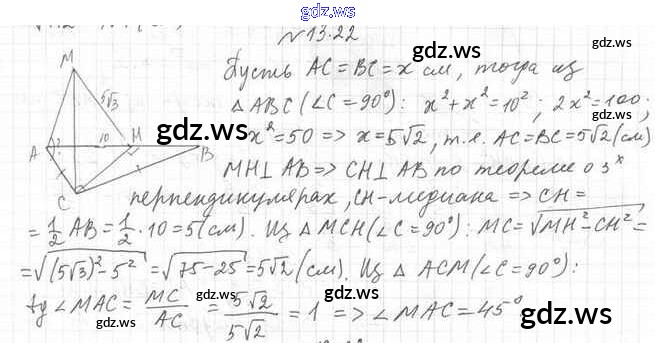 gdz.ws
№13.22
gdz.ws
Пусть AC=BC=x см, тогда из
△ABC(∠C=90°): x²+x²=10²; 2x²=100;
x²=50 => x=5√2, т.е. AC=BC=5√2(см)
MH⊥AB=>CH⊥AB по теореме о 3ˣ
перпендикулярах, CH-медиана => CH=
=1/2 AB=1/2·10=5(см). Из △MCH(∠C=90°): MC=√(MH²-CH²)=
=√((5√3)²-5²)=√(75-25)=5√2(см). Из △ACM(∠C=90°):
tg∠MAC=MC/AC=5√2/5√2=1=>∠MAC=45°
M
5√3
A
?
10
H
B
C
gdz.ws
gdz.ws
gdz.ws
gdz.ws
gdz.ws
gdz.ws